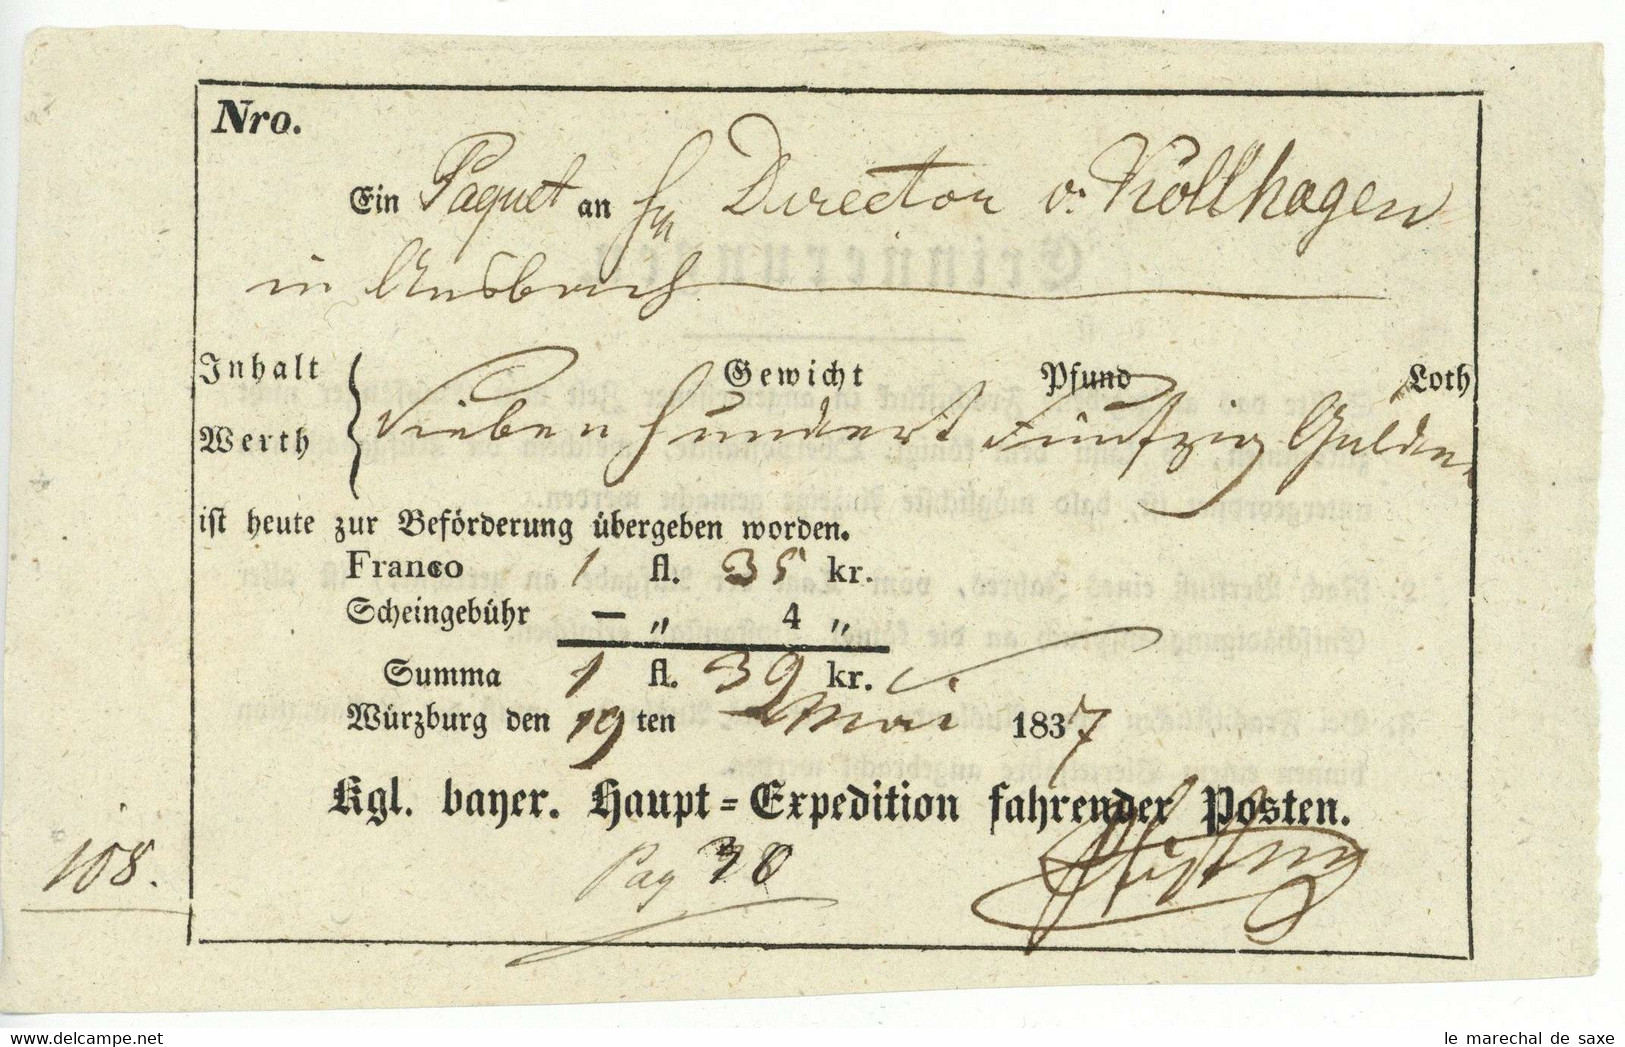 Nro.
Ein Paquet an Hn Director v. Kollhagen
in Ansbach
Inhalt Gewicht Pfund Loth
Werth Sieben hundert Fünfzig Gulden
ist heute zur Beförderung übergeben worden.
Franco 1 fl. 35 kr.
Scheingebühr — „ 4 „
Summa 1 fl. 39 kr.
Würzburg den 19ten Mai 1837
Kgl. bayer. Haupt=Expedition fahrender Posten.
108.
Pag 30
le marechal de saxe